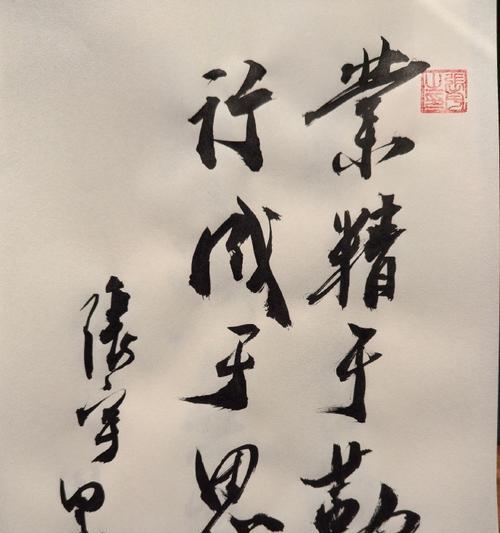 業精于勤
行成于思
張宇